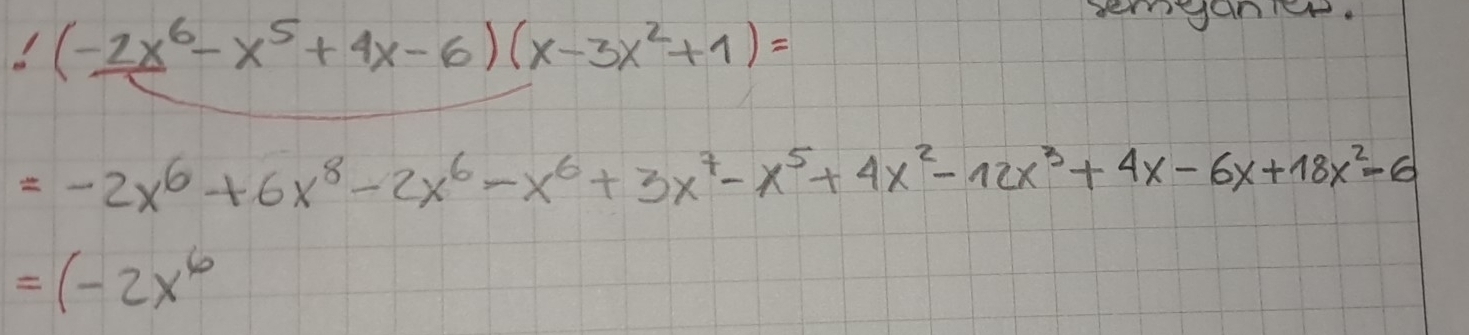 semejantes.
! (-2x⁶ - x⁵ + 4x - 6)(x - 3x² + 1) =
= -2x⁶ + 6x⁸ - 2x⁶ - x⁶ + 3x⁷ - x⁵ + 4x² - 12x³ + 4x - 6x + 18x² - 6
= (-2x⁶